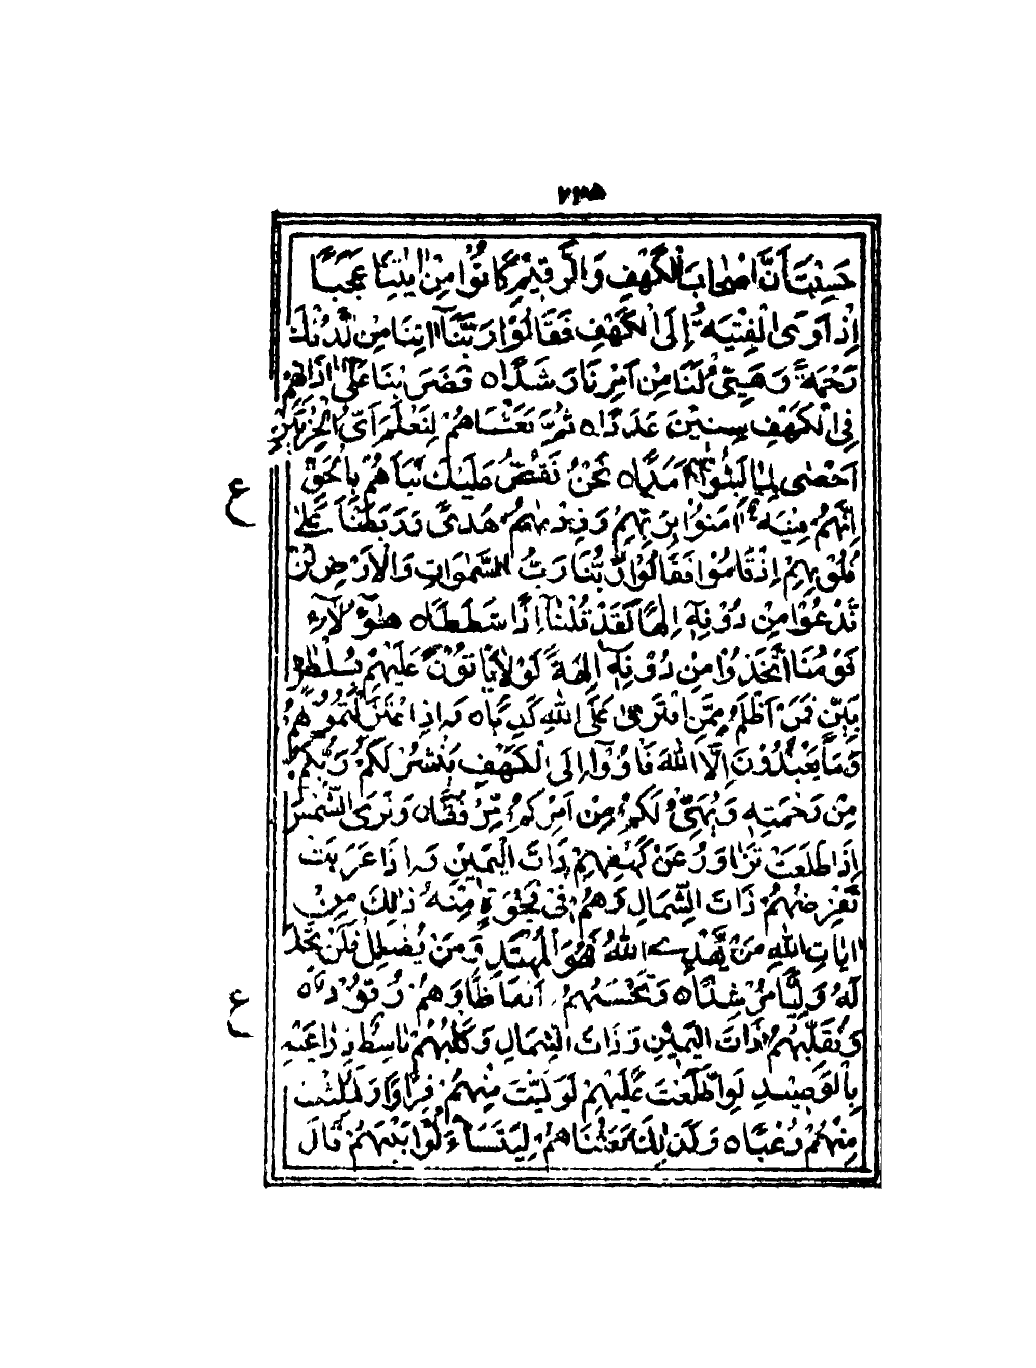 ۲۳۵
حَسِبْتَ اَنَّ اَصْحَابَ الْكَهْفِ وَالرَّقِيْمِ كَانُوْا مِنْ اٰيٰتِنَا عَجَبًا
اِذْ اَوَى الْفِتْيَةُ اِلَى الْكَهْفِ فَقَالُوْا رَبَّنَآ اٰتِنَا مِنْ لَّدُنْكَ
رَحْمَةً وَّهَيِّئْ لَنَا مِنْ اَمْرِنَا رَشَدًا ۝ فَضَرَبْنَا عَلٰٓى اٰذَانِهِمْ
فِى الْكَهْفِ سِنِيْنَ عَدَدًا ۝ ثُمَّ بَعَثْنَاهُمْ لِنَعْلَمَ اَىُّ الْحِزْبَيْنِ
اَحْصٰى لِمَا لَبِثُوْٓا اَمَدًا ۝ نَحْنُ نَقُصُّ عَلَيْكَ نَبَاَهُمْ بِالْحَقِّ
ع
اِنَّهُمْ فِتْيَةٌ اٰمَنُوْا بِرَبِّهِمْ وَزِدْنٰهُمْ هُدًى وَّرَبَطْنَا عَلٰى
قُلُوْبِهِمْ اِذْ قَامُوْا فَقَالُوْا رَبُّنَا رَبُّ السَّمٰوَاتِ وَالْاَرْضِ لَنْ
نَّدْعُوَا مِنْ دُوْنِهٖٓ اِلٰهًا لَقَدْ قُلْنَآ اِذًا شَطَطًا ۝ هٰٓؤُلَآءِ
قَوْمُنَا اتَّخَذُوْا مِنْ دُوْنِهٖٓ اٰلِهَةً لَوْلَا يَاْتُوْنَ عَلَيْهِمْ بِسُلْطٰنٍ
بَيِّنٍ فَمَنْ اَظْلَمُ مِمَّنِ افْتَرٰى عَلَى اللّٰهِ كَذِبًا ۝ وَاِذِ اعْتَزَلْتُمُوْهُمْ
وَمَا يَعْبُدُوْنَ اِلَّا اللّٰهَ فَاْوٗٓا اِلَى الْكَهْفِ يَنْشُرْ لَكُمْ رَبُّكُمْ
مِنْ رَحْمَتِهٖ وَيُهَيِّئْ لَكُمْ مِنْ اَمْرِكُمْ مِّرْفَقًا ۝ وَتَرَى الشَّمْسَ
اِذَا طَلَعَتْ تَزَاوَرُ عَنْ كَهْفِهِمْ ذَاتَ الْيَمِيْنِ وَاِذَا غَرَبَتْ
تَّقْرِضُهُمْ ذَاتَ الشِّمَالِ وَهُمْ فِىْ فَجْوَةٍ مِّنْهُ ذٰلِكَ مِنْ
اٰيَاتِ اللّٰهِ مَنْ يَّهْدِ اللّٰهُ فَهُوَ الْمُهْتَدِ وَمَنْ يُّضْلِلْ فَلَنْ تَجِدَ
لَهٗ وَلِيًّا مُّرْشِدًا ۝ وَتَحْسَبُهُمْ اَيْقَاظًا وَّهُمْ رُقُوْدٌ ۝
ع
وَّنُقَلِّبُهُمْ ذَاتَ الْيَمِيْنِ وَذَاتَ الشِّمَالِ وَكَلْبُهُمْ بَاسِطٌ ذِرَاعَيْهِ
بِالْوَصِيْدِ لَوِ اطَّلَعْتَ عَلَيْهِمْ لَوَلَّيْتَ مِنْهُمْ فِرَارًا وَّلَمُلِئْتَ
مِنْهُمْ رُعْبًا ۝ وَكَذٰلِكَ بَعَثْنَاهُمْ لِيَتَسَآءَلُوْا بَيْنَهُمْ قَالَ